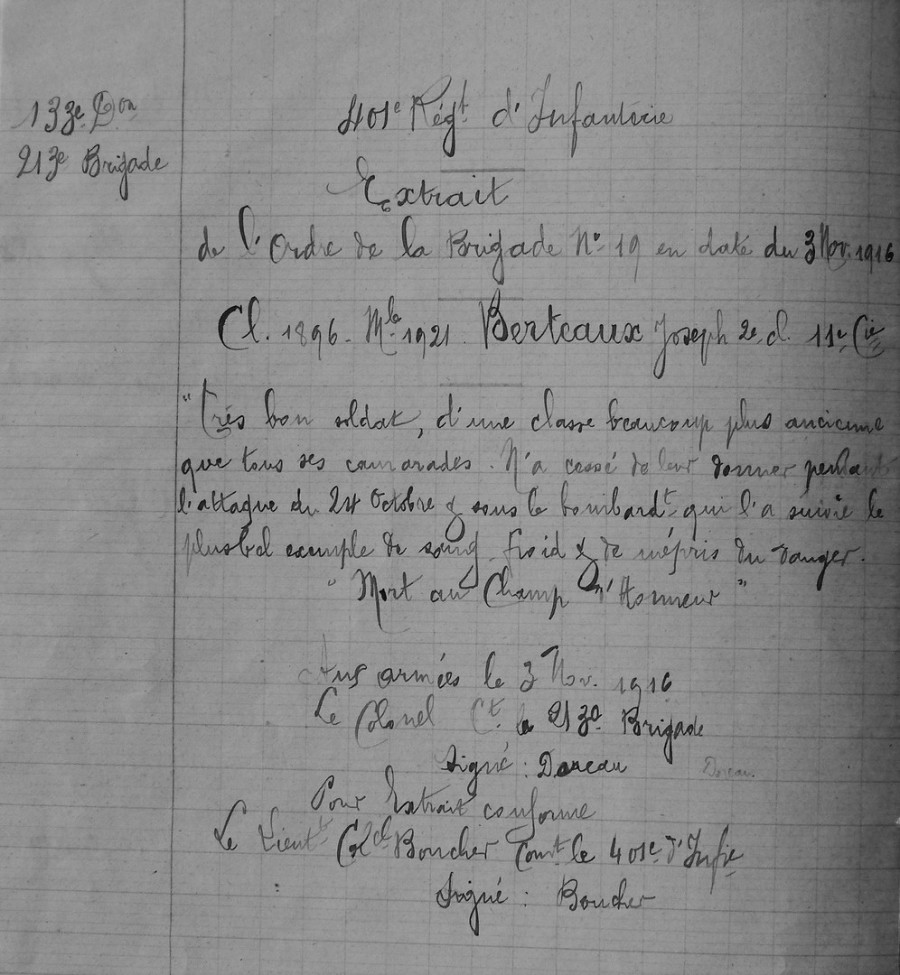 133e Don
213e Brigade
401e Régt d'Infanterie
Extrait
de l'Ordre de la Brigade N° 19 en date du 3 Nov. 1916
Cl. 1896. Mle 1921. Berteaux Joseph 2e cl. 11e Cie
"Très bon soldat, d'une classe beaucoup plus ancienne
que tous ses camarades. N'a cessé de leur donner pendant
l'attaque du 24 Octobre & sous le bombardt qui l'a suivie le
plus bel exemple de sang froid & de mépris du danger.
"Mort au Champ d'Honneur"
Aux armées le 3 Nov. 1916
Le Colonel Ct la 213e Brigade
Signé : Doreau
Doreau
Pour Extrait conforme
Le Lieutt Cel Boucher Comt le 401e d'Infie
Signé : Boucher